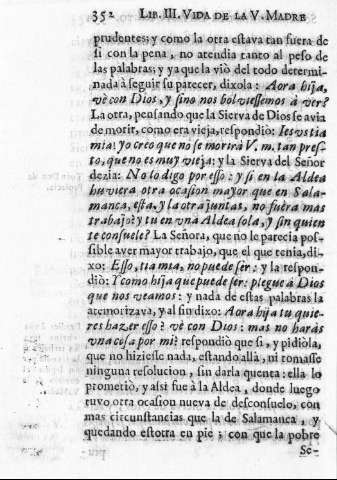 352 LIB. III. VIDA DE LA V. MADRE
prudentes; y como la otra estava tan fuera de
si con la pena, no atendia tanto al peso de
las palabras; y ya que la viò del todo determi-
nada à seguir su parecer, dixola: Aora hija,
vè con Dios, y sino nos bolviessemos à ver?
La otra, pensando que la Sierva de Dios se avia
de morir, como era vieja, respondiò: Iesvs tia
mia! yo creo que no se morirà V. m. tan pres-
to, que no es muy vieja; y la Sierva del Señor
dezia: No lo digo por esso: y si en la Aldea
huviera otra ocasion mayor que en Sala-
manca, esta, y la otra juntas, no fuera mas
trabajo? y tu en vnà Aldea sola, y sin quien
te consuele? La Señora, que no le parecia pos-
sible aver mayor trabajo, que el que tenia, di-
xo: Esso, tia mia, no puede ser: y la respon-
diò: Y como hija que puede ser: plegue à Dios
que nos veamos: y nada de estas palabras la
atemorizava, y al fin dixo: Aora hija tu quie-
res hazer esso? vè con Dios: mas no haràs
vna cosa por mi? respondiò que si, y pidiòla,
que no hiziesse nada, estando allà, ni tomasse
ninguna resolucion, sin darla quenta: ella lo
prometiò, y assi fue à la Aldea, donde luego
tuvo otra ocasion nueva de desconsuelo, con
mas circunstancias que la de Salamanca, y
quedando estotra en pie; con que la pobre
Se-